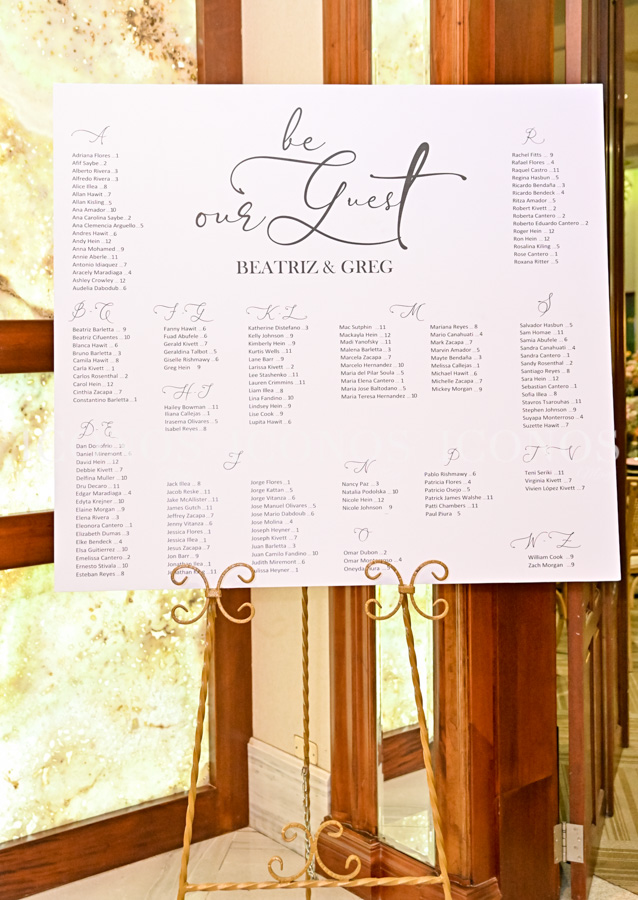 be
our Guest
BEATRIZ & GREG
A
Adriana Flores ..1
Afif Saybe ..2
Alberto Rivera ..3
Alfredo Rivera ..3
Alice Illea ..8
Allan Hawit ..7
Allan Kisling ..5
Ana Amador ..10
Ana Carolina Saybe ..2
Ana Clemencia Arguello ..5
Andres Hawit ..6
Andy Hein ..12
Anna Mohamed ..9
Annie Aberle ..11
Antonio Idiaquez ..7
Aracely Maradiaga ..4
Ashley Crowley ..12
Audelia Dabodub ..6
B-C
Beatriz Barletta ..9
Beatriz Cifuentes ..10
Blanca Hawit ..6
Bruno Barletta ..3
Camila Hawit ..8
Carla Kivett ..1
Carlos Rosenthal ..2
Carol Hein ..12
Cinthia Zacapa ..7
Constantino Barletta ..1
D-E
Dan Donofrio ..10
Daniel Miremont ..6
David Hein ..12
Debbie Kivett ..7
Delfina Muller ..10
Dru Decaro ..11
Edgar Maradiaga ..4
Edyta Krejner ..10
Elaine Morgan ..9
Elena Rivera ..3
Eleonora Cantero ..1
Elizabeth Dumas ..3
Elke Bendeck ..4
Elsa Guitierrez ..10
Emelissa Cantero ..2
Ernesto Stivala ..10
Esteban Reyes ..8
F-G
Fanny Hawit ..6
Fuad Abufele ..6
Gerald Kivett ..7
Geraldina Talbot ..5
Giselle Rishmawy ..6
Greg Hein ..9
H-I
Hailey Bowman ..11
Iliana Callejas ..1
Irasema Olivares ..5
Isabel Reyes ..8
J
Jack Illea ..8
Jacob Roske ..11
Jake McAllister ..11
James Gutch ..11
Jeffrey Zacapa ..7
Jenny Vitanza ..6
Jessica Flores ..1
Jessica Illea ..8
Jesus Zacapa ..7
Jon Barr ..9
Jonathan Ilea ..1
Jorge Flores ..1
Jorge Kattan ..5
Jorge Vitanza ..6
Jose Manuel Olivares ..5
Jose Mario Dabdoub ..6
Jose Molina ..4
Joseph Heyner ..1
Joseph Kivett ..7
Juan Barletta ..3
Juan Camilo Fandino ..10
Judith Miremont ..6
Heyner ..1
K-L
Katherine Distefano ..3
Kelly Johnson ..9
Kimberly Hein ..9
Kurtis Wells ..11
Lane Barr ..9
Larissa Kivett ..2
Lee Stashenko ..11
Lauren Crimmins ..11
Liam Illea ..8
Lina Fandino ..10
Lindsey Hein ..9
Lise Cook ..9
Lupita Hawit ..6
M
Mac Sutphin ..11
Mackayla Hein ..12
Madi Yanofsky ..11
Malena Barletta ..3
Marcela Zacapa ..7
Marcelo Hernandez ..10
Maria del Pilar Soula ..5
Maria Elena Cantero ..1
Maria Jose Baltodano ..5
Maria Teresa Hernandez ..10
Mariana Reyes ..8
Mario Canahuati ..4
Mark Zacapa ..7
Marvin Amador ..5
Mayte Bendaña ..3
Melissa Callejas ..1
Michael Hawit ..6
Michelle Zacapa ..7
Mickey Morgan ..9
N
Nancy Paz ..3
Natalia Podolska ..10
Nicole Hein ..12
Nicole Johnson ..9
O
Omar Dubon ..2
Omar Montenegro ..4
Oneyda
P
Pablo Rishmawy ..6
Patricia Flores ..4
Patricio Osejo ..5
Patrick James Walshe ..11
Patti Chambers ..11
Paul Piura ..5
R
Rachel Fitts ..9
Rafael Flores ..4
Raquel Castro ..11
Regina Hasbun ..5
Ricardo Bendaña ..3
Ricardo Bendeck ..4
Ritza Amador ..5
Robert Kivett ..2
Roberta Cantero ..2
Roberto Eduardo Cantero ..2
Roger Hein ..12
Ron Hein ..12
Rosalina Kiling ..5
Rose Cantero ..1
Roxana Ritter ..5
S
Salvador Hasbun ..5
Sam Homae ..11
Samia Abufele ..6
Sandra Canahuati ..4
Sandra Cantero ..1
Sandy Rosenthal ..2
Santiago Reyes ..8
Sara Hein ..12
Sebastian Cantero ..1
Sofia Illea ..8
Stavros Tiarouhas ..11
Stephen Johnson ..9
Suyapa Monterroso ..4
Suzette Hawit ..7
T-V
Teni Seriki ..11
Virginia Kivett ..7
Vivien López Kivett ..7
W-Z
William Cook ..9
Zach Morgan ..9